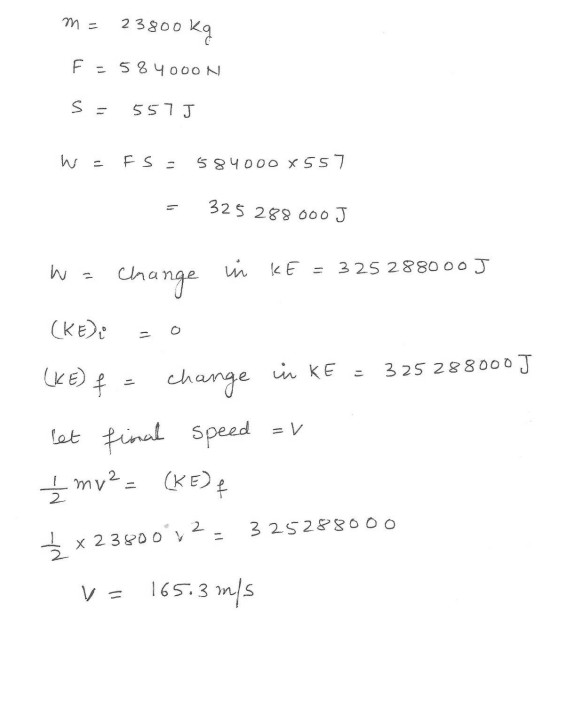 m = 23800 kg
F = 584000 N
S = 557 J
W = FS = 584000 x 557
= 325 288 000 J
W = change in KE = 325288000 J
(KE)i = 0
(KE)f = change in KE = 325288000 J
let final speed = V
1/2 mv² = (KE)f
1/2 x 23800 v² = 325288000
V = 165.3 m/s